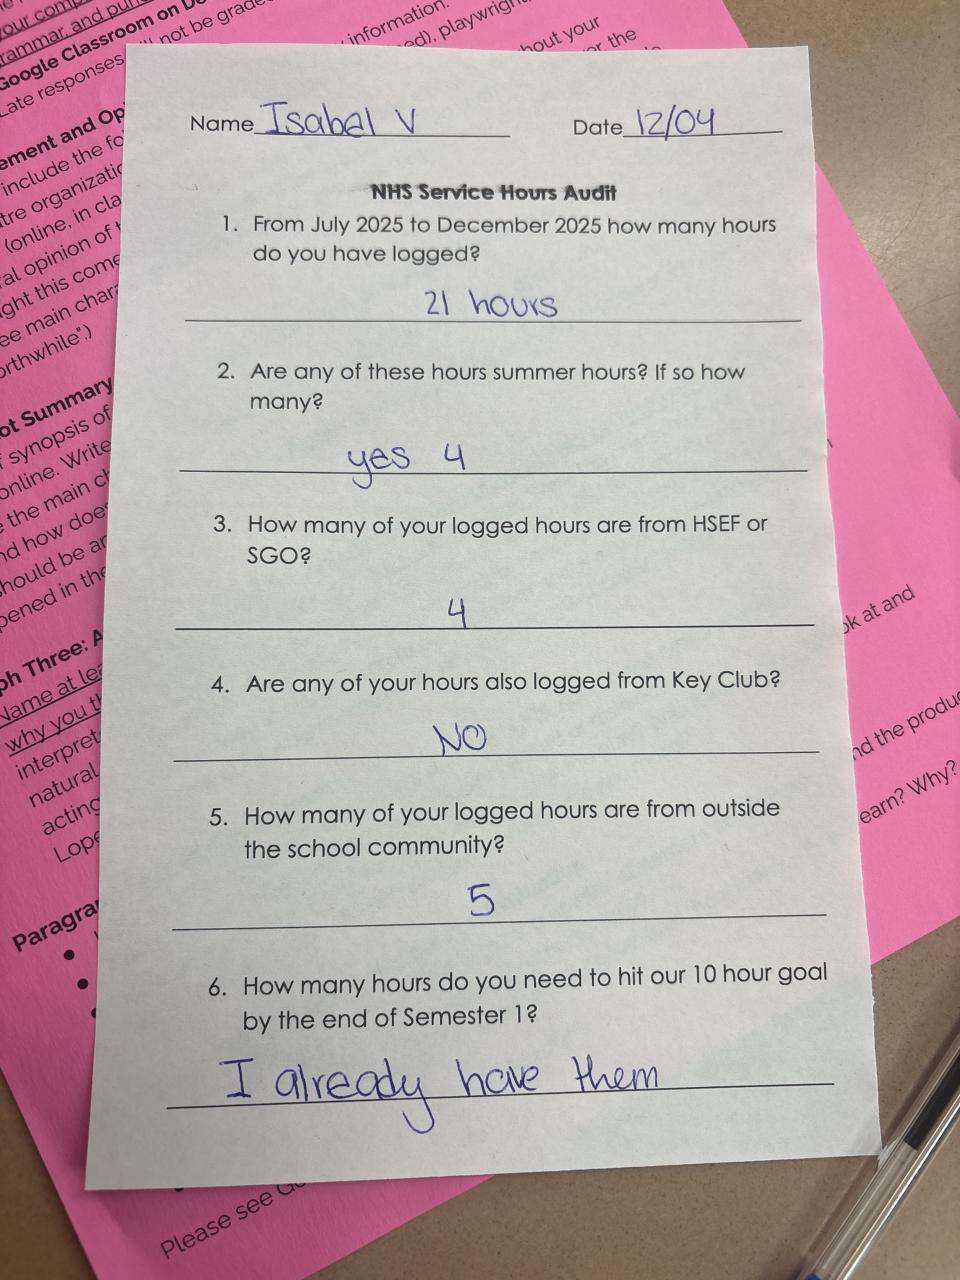 your comp
grammar, and pun
Google Classroom on D
Late responses
not be grade
information.
ed), playwright
hout your
or, the
Name Isabel V
Date 12/04
NHS Service Hours Audit
1. From July 2025 to December 2025 how many hours
do you have logged?
21 hours
2. Are any of these hours summer hours? If so how
many?
yes 4
3. How many of your logged hours are from HSEF or
SGO?
4
4. Are any of your hours also logged from Key Club?
NO
5. How many of your logged hours are from outside
the school community?
5
6. How many hours do you need to hit our 10 hour goal
by the end of Semester 1?
I already have them
ement and Op
include the fo
tre organizatio
(online, in cla
ral opinion of t
ght this come
ee main chara
orthwhile".)
ot Summary
synopsis of
online. Write
the main ch
nd how doe
should be ar
pened in the
ph Three: A
Name at lea
why you th
interpret
natural
acting
Lope
Paragra
ok at and
nd the produc
earn? Why?
Please see Go